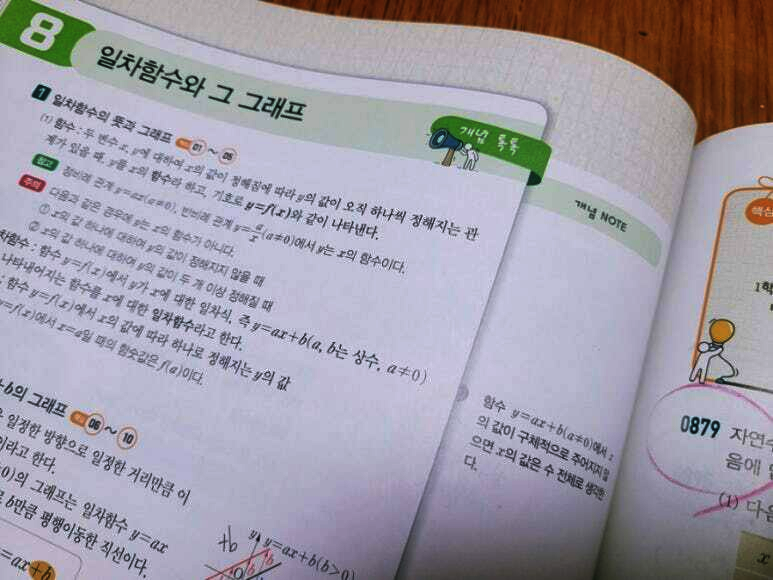 8
일차함수와 그 그래프
1 일차함수의 뜻과 그래프 01~05
(1) 함수 : 두 변수 x, y에 대하여 x의 값이 정해짐에 따라 y의 값이 오직 하나씩 정해지는 관
계가 있을 때, y를 x의 함수라 하고, 기호로 y=f(x)와 같이 나타낸다.
참고 정비례 관계 y=ax(a≠0), 반비례 관계 y=a/x(a≠0)에서 y는 x의 함수이다.
주의 다음과 같은 경우에 y는 x의 함수가 아니다.
① x의 값 하나에 대하여 y의 값이 정해지지 않을 때
② x의 값 하나에 대하여 y의 값이 두 개 이상 정해질 때
차함수 : 함수 y=f(x)에서 y가 x에 대한 일차식, 즉 y=ax+b(a, b는 상수, a≠0)
나타내어지는 함수를 x에 대한 일차함수라고 한다.
함수 y=f(x)에서 x의 값에 따라 하나로 정해지는 y의 값
y=f(x)에서 x=a일 때의 함숫값은 f(a)이다.
b의 그래프 06~10
일정한 방향으로 일정한 거리만큼 이
이라고 한다.
0)의 그래프는 일차함수 y=ax
b만큼 평행이동한 직선이다.
=ax+b
+b
y
y=ax+b(b>0)
b
b
O
개념 톡톡
개념 NOTE
함수 y=ax+b(a≠0)에서 x
의 값이 구체적으로 주어지지 않
으면 x의 값은 수 전체로 생각한
다.
핵심
1
0879 자연수
음에
(1) 다음
x